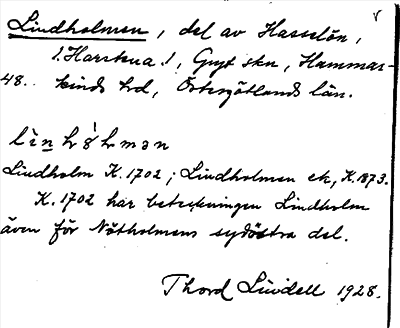 Lindholmen, del av Hasselön,
1. Harstena 1, Gryt skn, Hammar-
48.. kinds hd, Östergötlands län.
Lindholm K. 1702; Lindholmen ek, K. 1873.
K. 1702 har beteckningen Lindholm
även för Nötholmens sydöstra del.
Thord Lindell 1928.